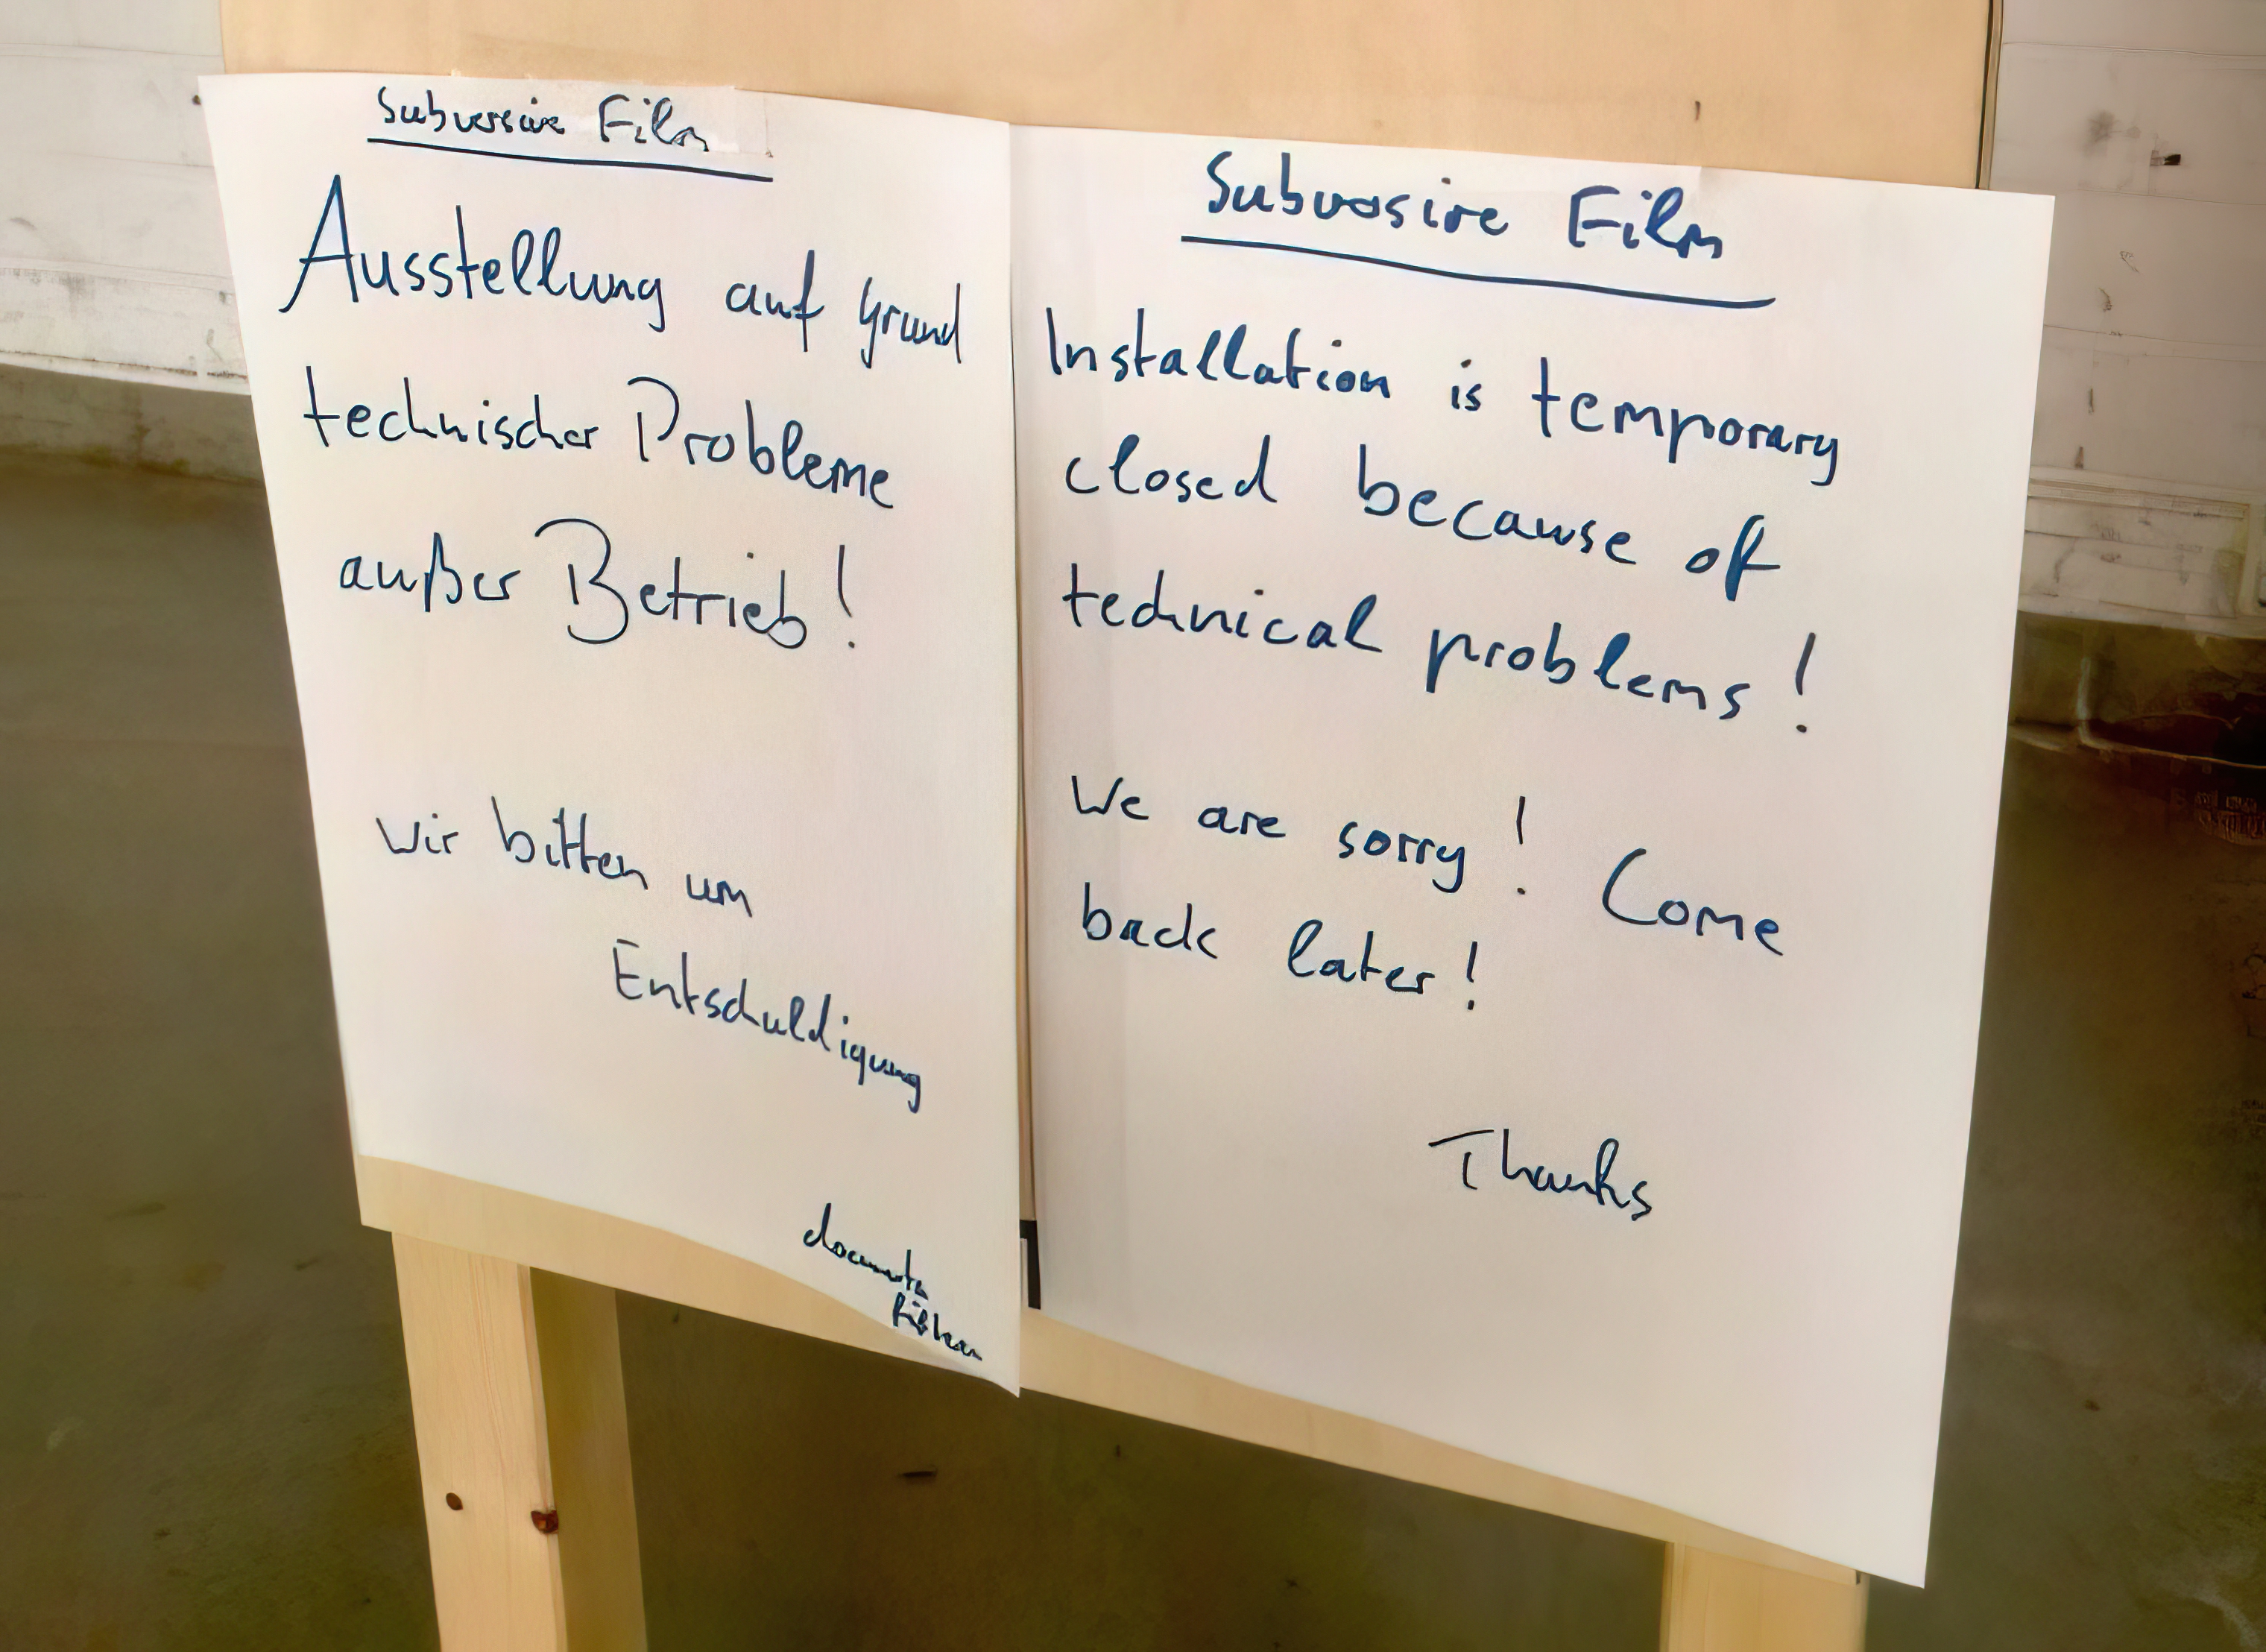 Subversive Film
Ausstellung auf Grund
technischer Probleme
außer Betrieb!
Wir bitten um
Entschuldigung
documenta
Subversive Film
Installation is temporary
closed because of
technical problems!
We are sorry! Come
back later!
Thanks